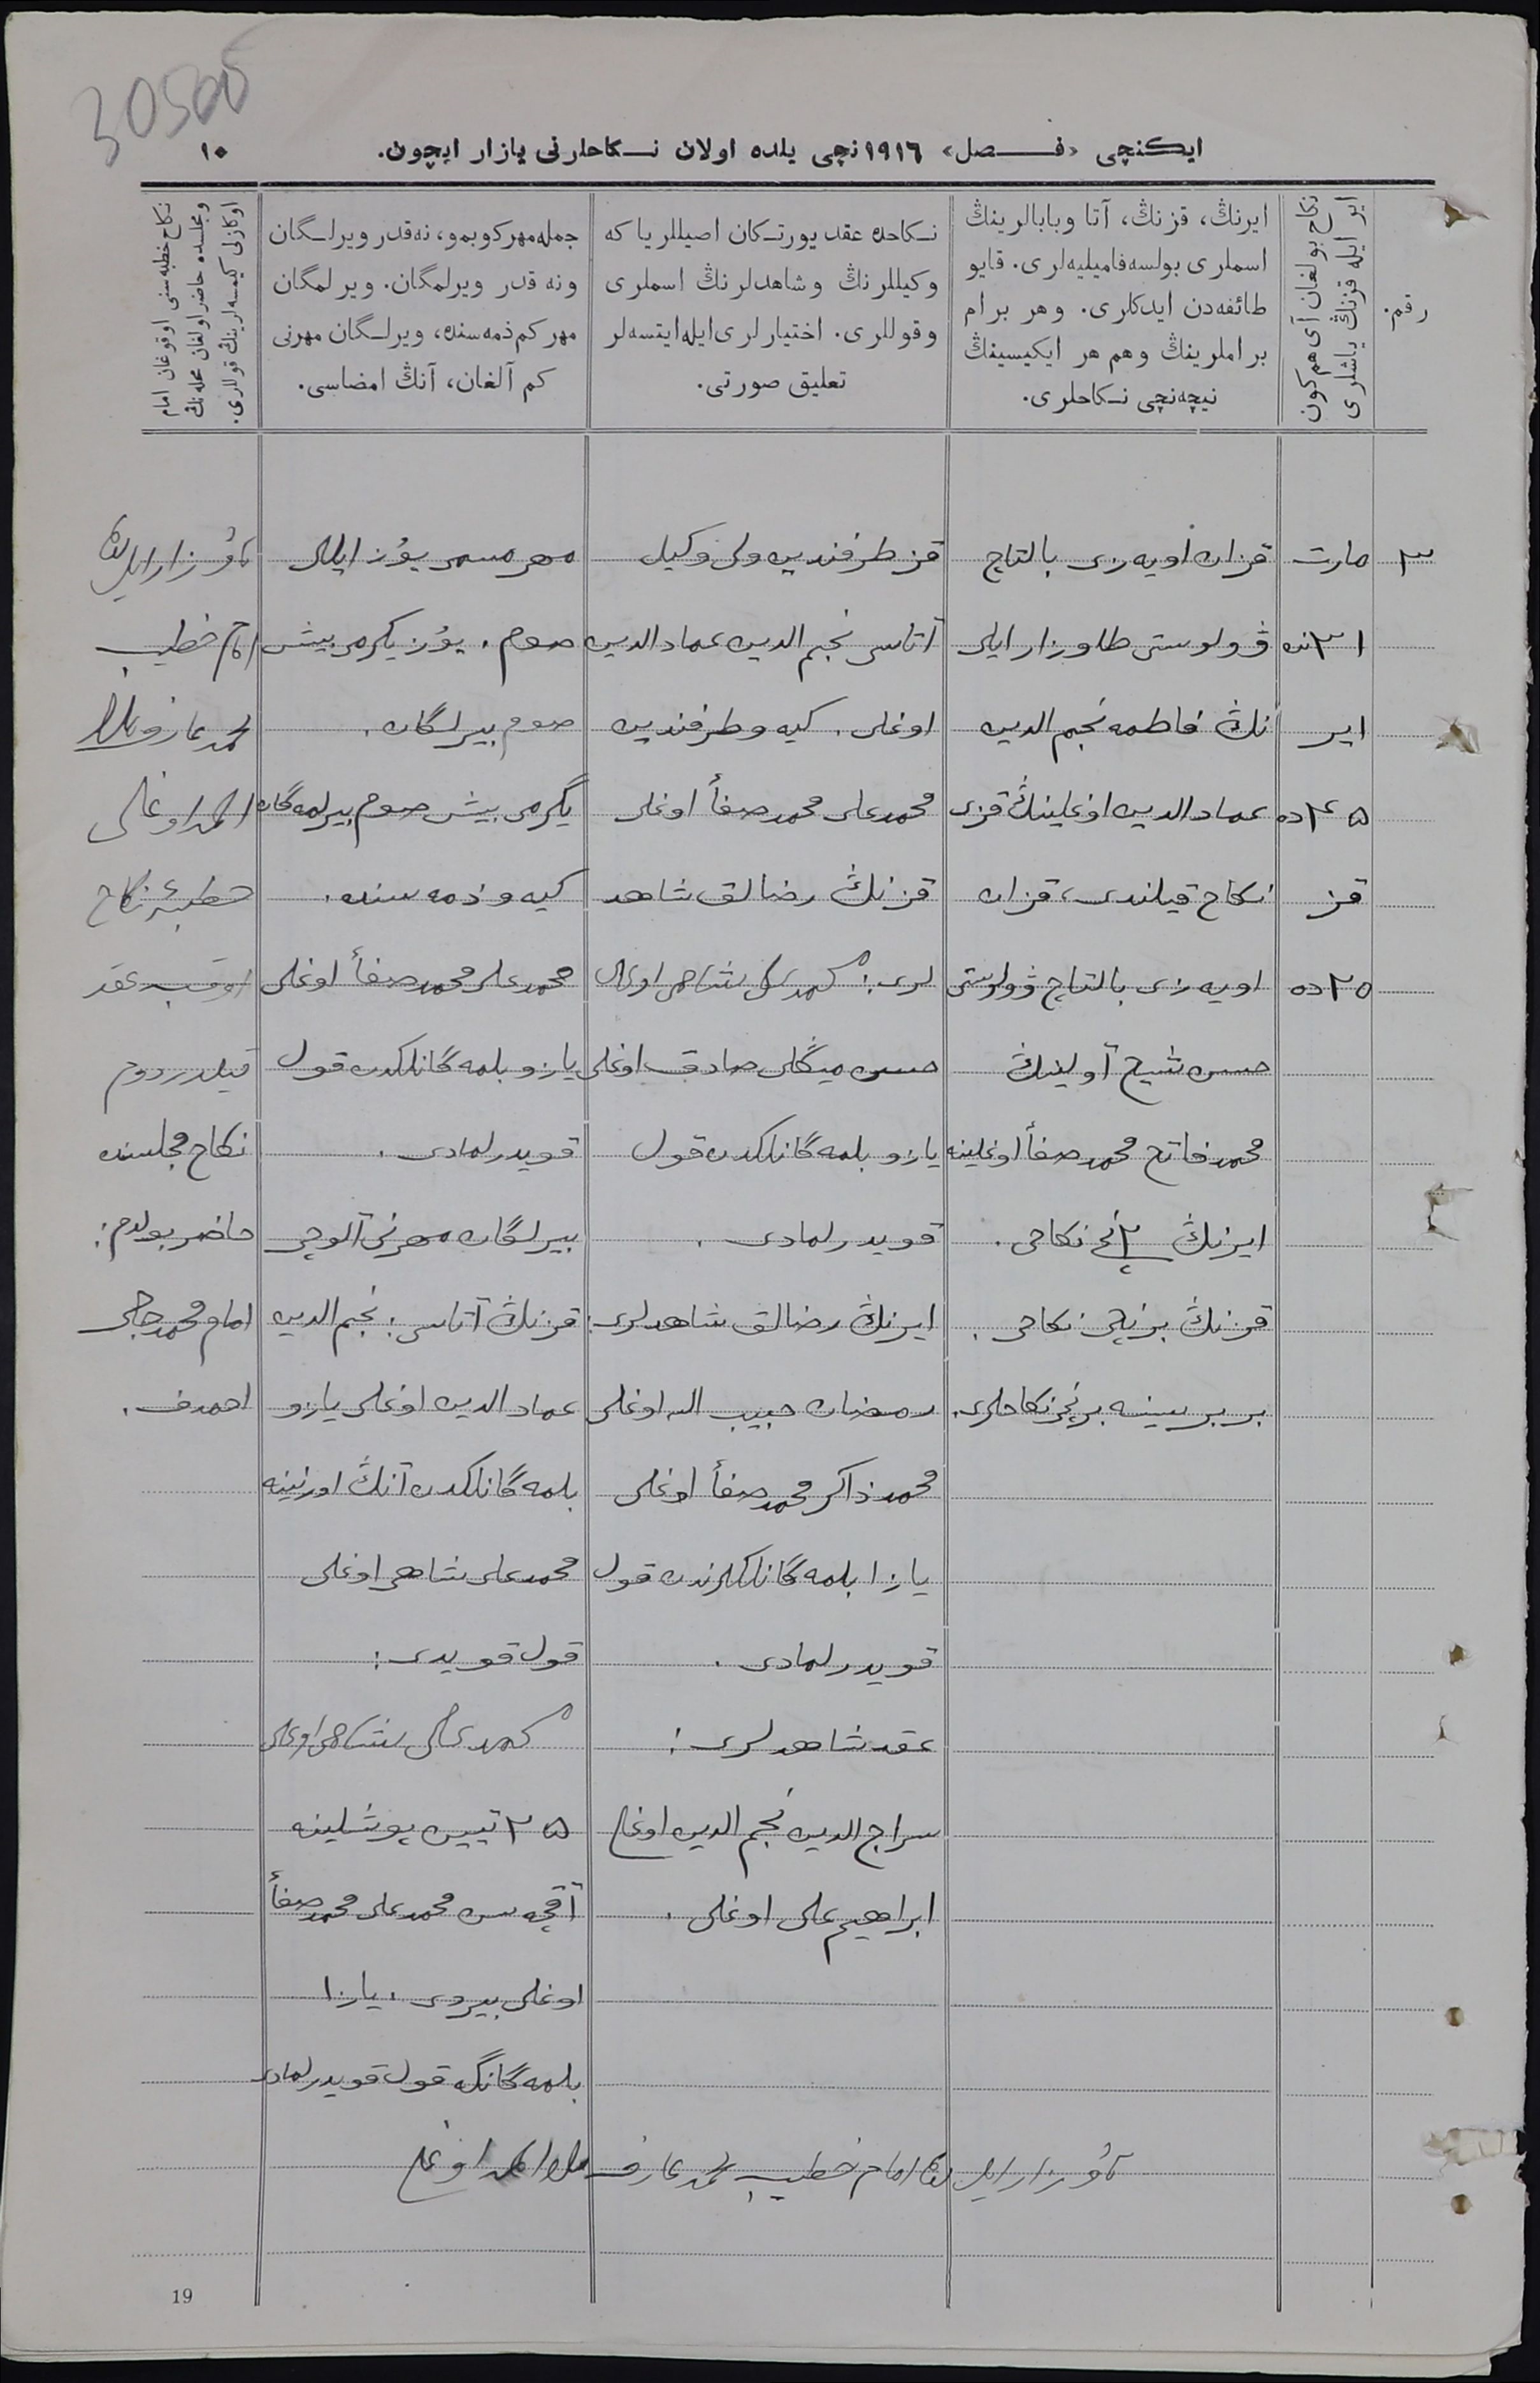 30500
ایكنچی «فـــصل» ١٩١٦نچی یلده اولان نـكاحلرنی یازار ایچون.
١٠
رقم.
نكاح بولغان آی هم كون
ایر ایله قزنڭ یاشلری
ایرنڭ، قزنڭ، آتا وبابالرینڭ
اسملری بولسه فامیلیه‌لری. قایو
طائفه‌دن ایدكلری. وهر برام
بر املرینڭ وهم هر ایكیسینڭ
نیچه‌نچی نـكاحلری.
نـكاحده عقد یورتـكان اصیللر یا كه
وكیللرنڭ وشاهدلرنڭ اسملری
وقوللری. اختیارلری ایله ایتسه‌لر
تعلیق صورتی.
جمله مهر كوبمو، نه‌قدر ویرلـگان
ونه قدر ویرلمگان. ویرلمگان
مهر كم ذمه‌سنده، ویرلـگان مهرنی
كم آلغان، آنڭ امضاسی.
نكاح خطبه‌سنی اوقوغان امام
ومجلسده حاضر اولغان محله‌نڭ
اوكازلی كیمسه‌لرینڭ قوللری.
٣
مارت
٣١نده
ایر
٤٥ده
قز
٢٥ده
قزان اویه‌زی بالتاچ
ڤولوستی طاوزار ایلی
نڭ فاطمه نجم الدین
عماد الدین اوغلینڭ قزی
نكاح قیلندی، قزان
اویه‌زی بالتاچ ڤولوستی
حسن شیخ آولینڭ
محمد فاتح محمد صفأ اوغلینه
ایرنڭ ٢نچی نكاحی.
قزنڭ برنچی نكاحی.
بر برسینه برنچی نكاحلری.
قز طرفندین ولی وكیل
آتاسی نجم الدین عماد الدین
اوغلی. كیه‌و طرفندین
محمد علی محمد صفأ اوغلی
قزنڭ رضالق شاهد
لری: محمد علی شاهی اوغلی
حسن مینگلی صادق اوغلی
یازو بلمه‌گانلكدن قول
قویدرلمادی.
ایرنڭ رضالق شاهدلری:
رمضان حبیب الله اوغلی
محمد ذاكر محمد صفأ اوغلی
یازا بلمه‌گانلكلرندن قول
قویدرلمادی.
عقد شاهدلری:
سراج الدین نجم الدین اوغلی
ابراهیم علی اوغلی.
مهر مسمی یۇز ایللی
صوم. یۇز یكرمی بیش
صوم بیرلگان.
یگرمی بیش صوم بیرلمه‌گان
كیه‌و ذمه‌سنده.
محمد علی محمد صفأ اوغلی
یازو بلمه‌گانلكدن قول
قویدرلمادی.
بیرلگان مهرنی آلوچی
قزنڭ آتاسی: نجم الدین
عماد الدین اوغلی یازو
بلمه‌گانلكدن آنڭ اورنینه
محمد علی شاهی اوغلی
قول قویدی:
محمد علی شاهی اوغلی
٢٥ تیین پوشلینه
آقچه‌سن محمد علی محمد صفأ
اوغلی بیردی. یازا
بلمه‌گانگه قول قویدرلمادی
امام خطیب
محمد عارف ملا
احمد اوغلی
خطبۀ نكاح
اوقب عقد
قیلدردم
نكاح مجلسنده
حاضر بولدم:
امام محمدجانی
احمدف.
امام خطیب محمد عارف ملا احمد اوغلی
19